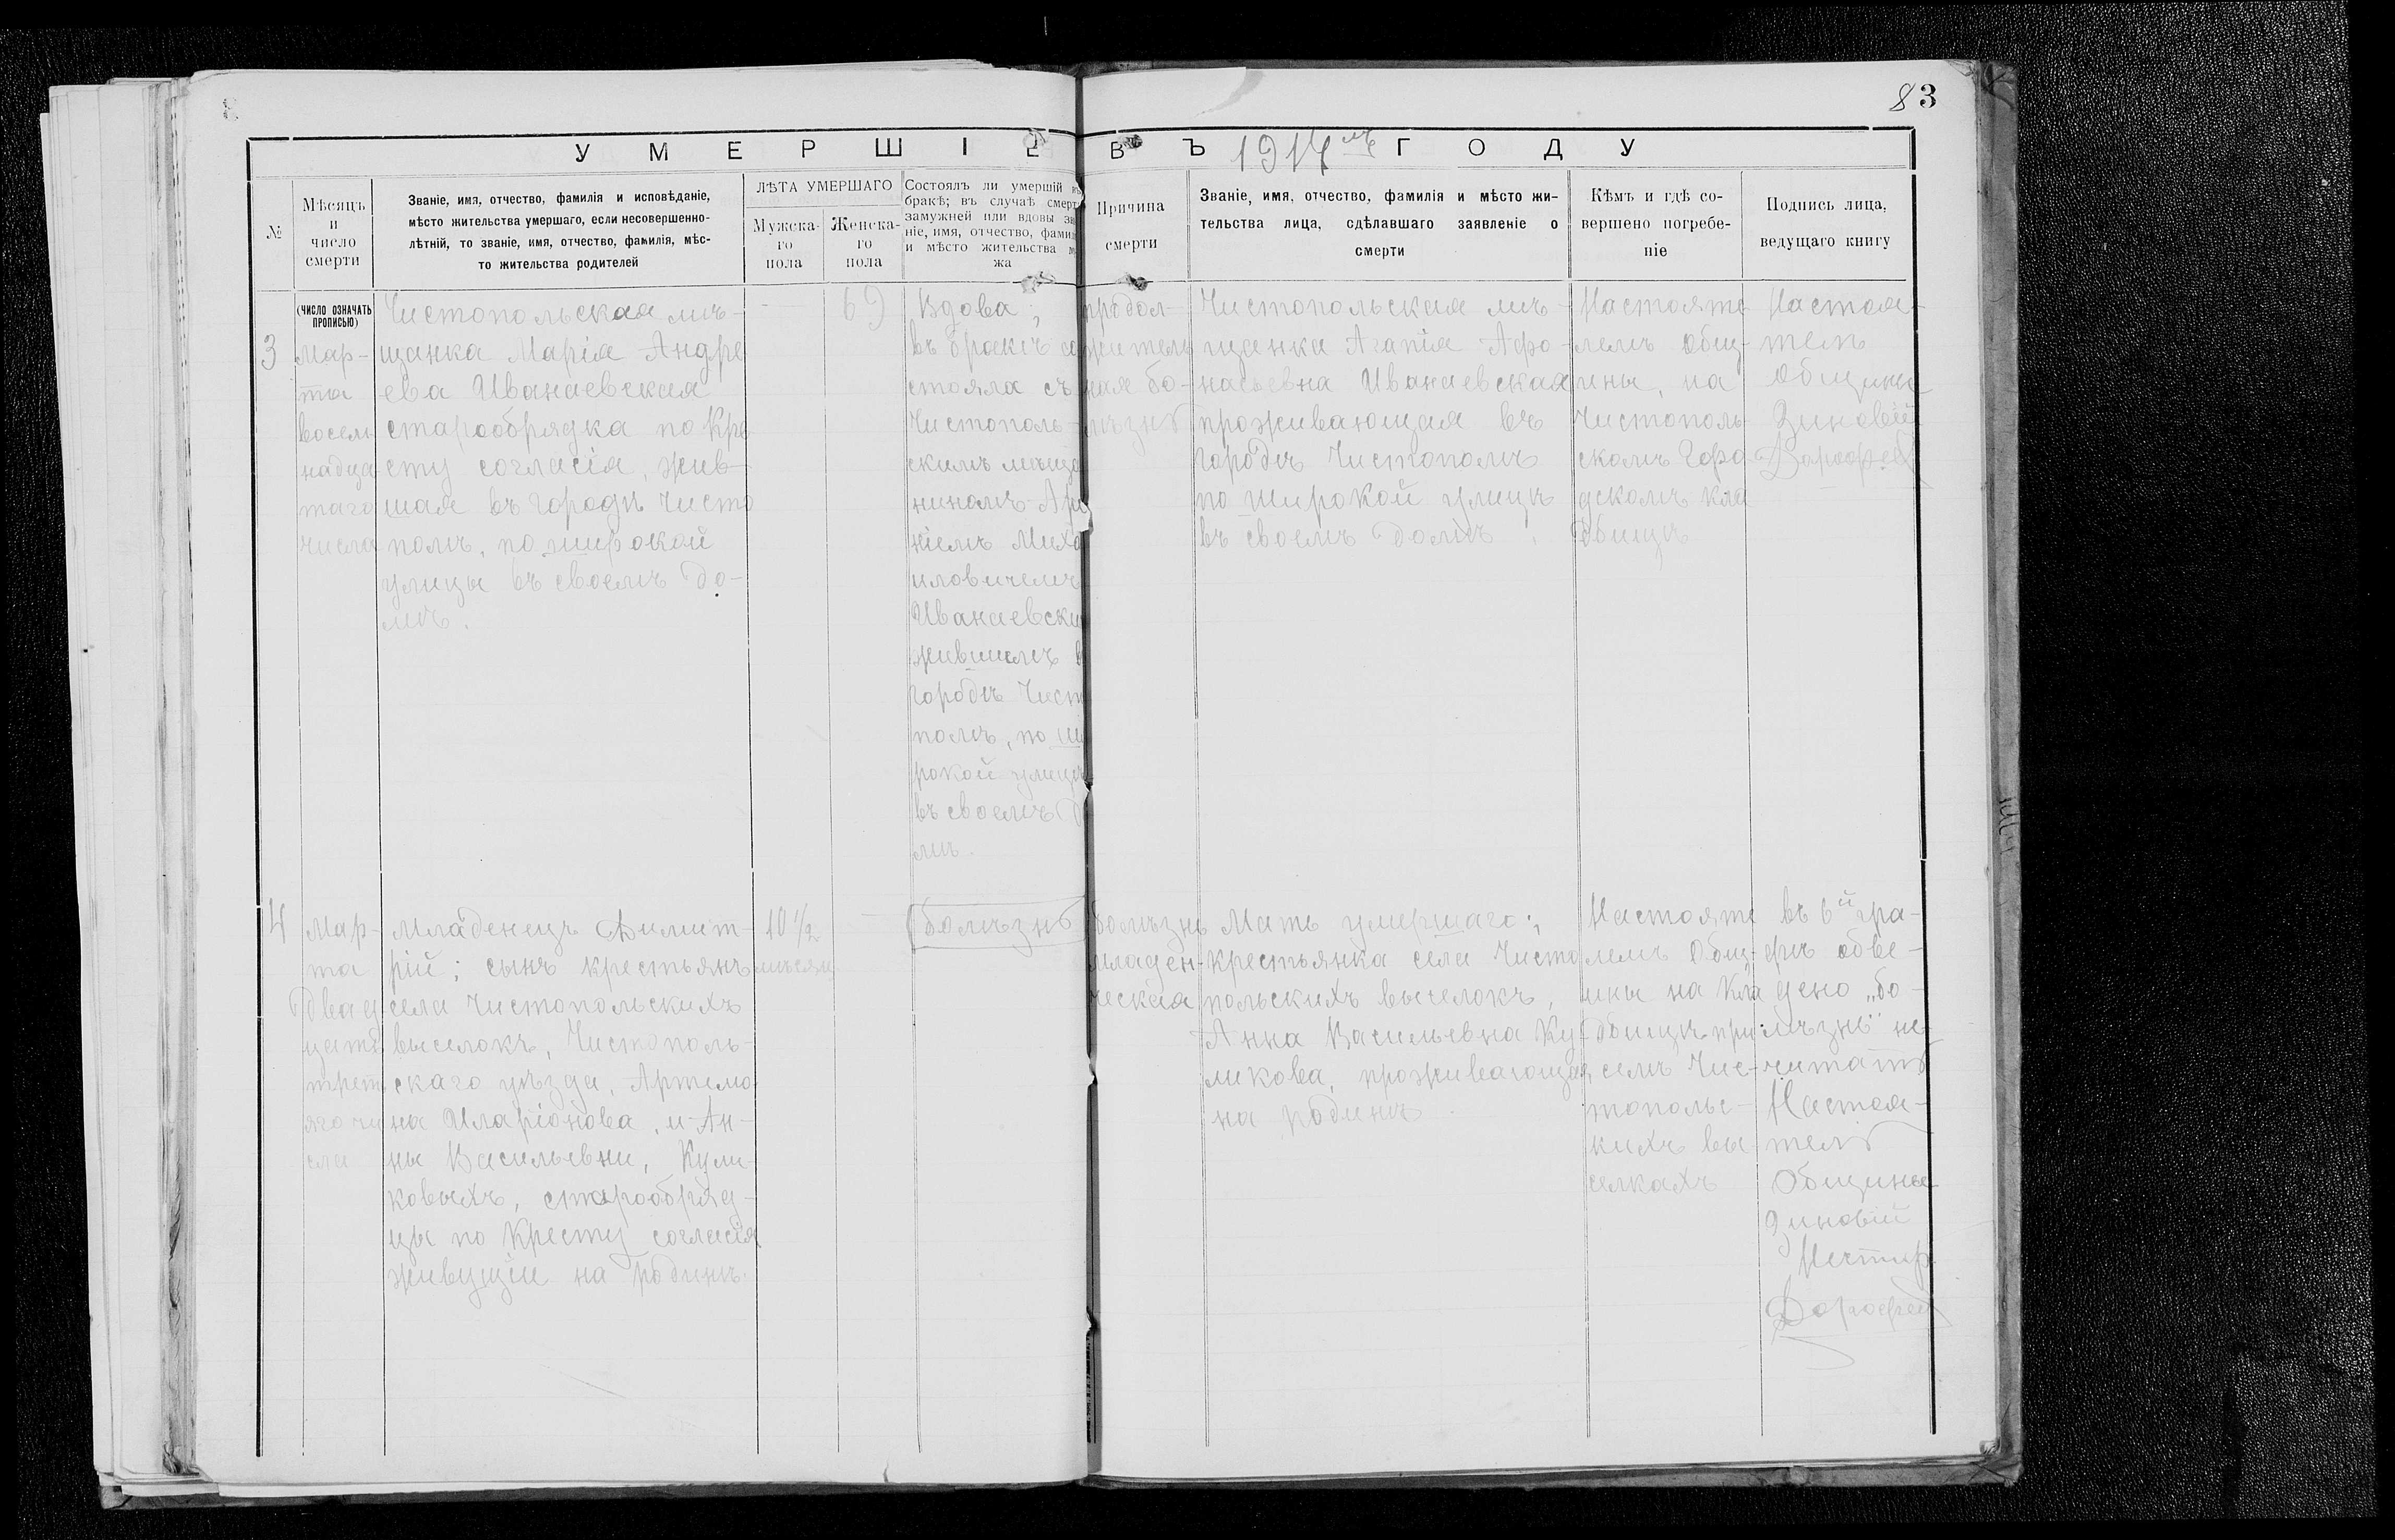 83
УМЕРШІЕ ВЪ 1914мъ ГОДУ
№
Мѣсяцъ
и
число
смерти
Званіе, имя, отчество, фамилія и исповѣданіе,
мѣсто жительства умершаго, если несовершенно-
лѣтній, то званіе, имя, отчество, фамилія, мѣс-
то жительства родителей
ЛѢТА УМЕРШАГО
Мужска-
го
пола
Женска-
го
пола
Состоялъ ли умершій въ
бракѣ; въ случаѣ смерт
замужней или вдовы зва
ніе, имя, отчество, фамил
и мѣсто жительства му
жа
Причина
смерти
Званіе, имя, отчество, фамилія и мѣсто жи-
тельства лица, сдѣлавшаго заявленіе о
смерти
Кѣмъ и гдѣ со-
вершено погребе-
ніе
Подпись лица,
ведущаго книгу
(ЧИСЛО ОЗНАЧАТЬ
ПРОПИСЬЮ)
3
Мар-
та
восем
надца
таго
числа
Чистопольская мѣ-
щанка Марія Андре
ева Иванаевская
старообрядка по Кре
сту согласія, жив-
шая въ городѣ Чисто
полѣ, по широкой
улицы въ своемъ до-
мѣ.
-
69
Вдова;
въ бракѣ со
стояла съ
Чистополь-
скимъ мѣща
ниномъ
ніемъ Миха
иловичемъ
Иванаевски
жившемъ в
городѣ Чист
полѣ, по ши
рокой улицѣ
въ своемъ д
мѣ.
продол-
житель
ная бо-
лѣзнь
Чистопольская мѣ-
щанка Агапія Афо-
насьевна Иванаевская
проживающая въ
городѣ Чистополѣ
по широкой улицѣ
въ своемъ домѣ.
Настояте
лемъ общ-
ины, на
Чистополь
скомъ Горо
дскомъ кла
дбищѣ
Настоя-
тель
Общины
Зиновій
Дорофеев
4
Мар-
та
двад
цать
трет
яго чи
сла
Младенецъ Димит-
рій; сынъ крестьянъ
села Чистопольскихъ
выселокъ, Чистополь-
скаго уѣзда, Артемо
на Иларіонова, и Ан-
ны Васильевни, Кули
ковыхъ, старообряд-
цы по Кресту согласія
живущіи на родинѣ.
10 1/2
мѣсяц
-
болѣзнь
болѣзнь
младен-
ческая
Мать умершаго;
крестьянка села Чисто
польскихъ выселокъ,
Анна Васильевна Ку-
ликова, проживающая
на родинѣ
Настояте
лемъ Общ-
ины на Кла
дбищѣ при
селѣ Чис-
тополь-
кихъ вы-
селкахъ
въ 6й гра-
фѣ обве-
дено „бо-
лѣзнь" не
читать
Настоя-
тель
Общины
Зиновій
Нестер
Дорофеев